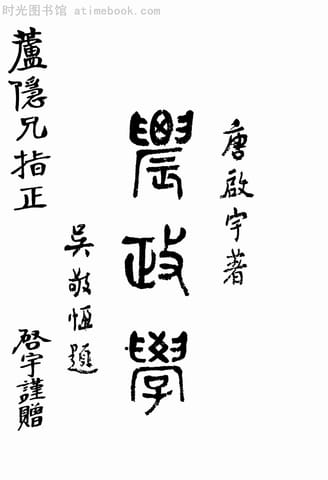 时光图书馆 atimebook.com
唐啟宇著
農政學
吳敬恆題
蘆隱兄指正
啓宇謹贈